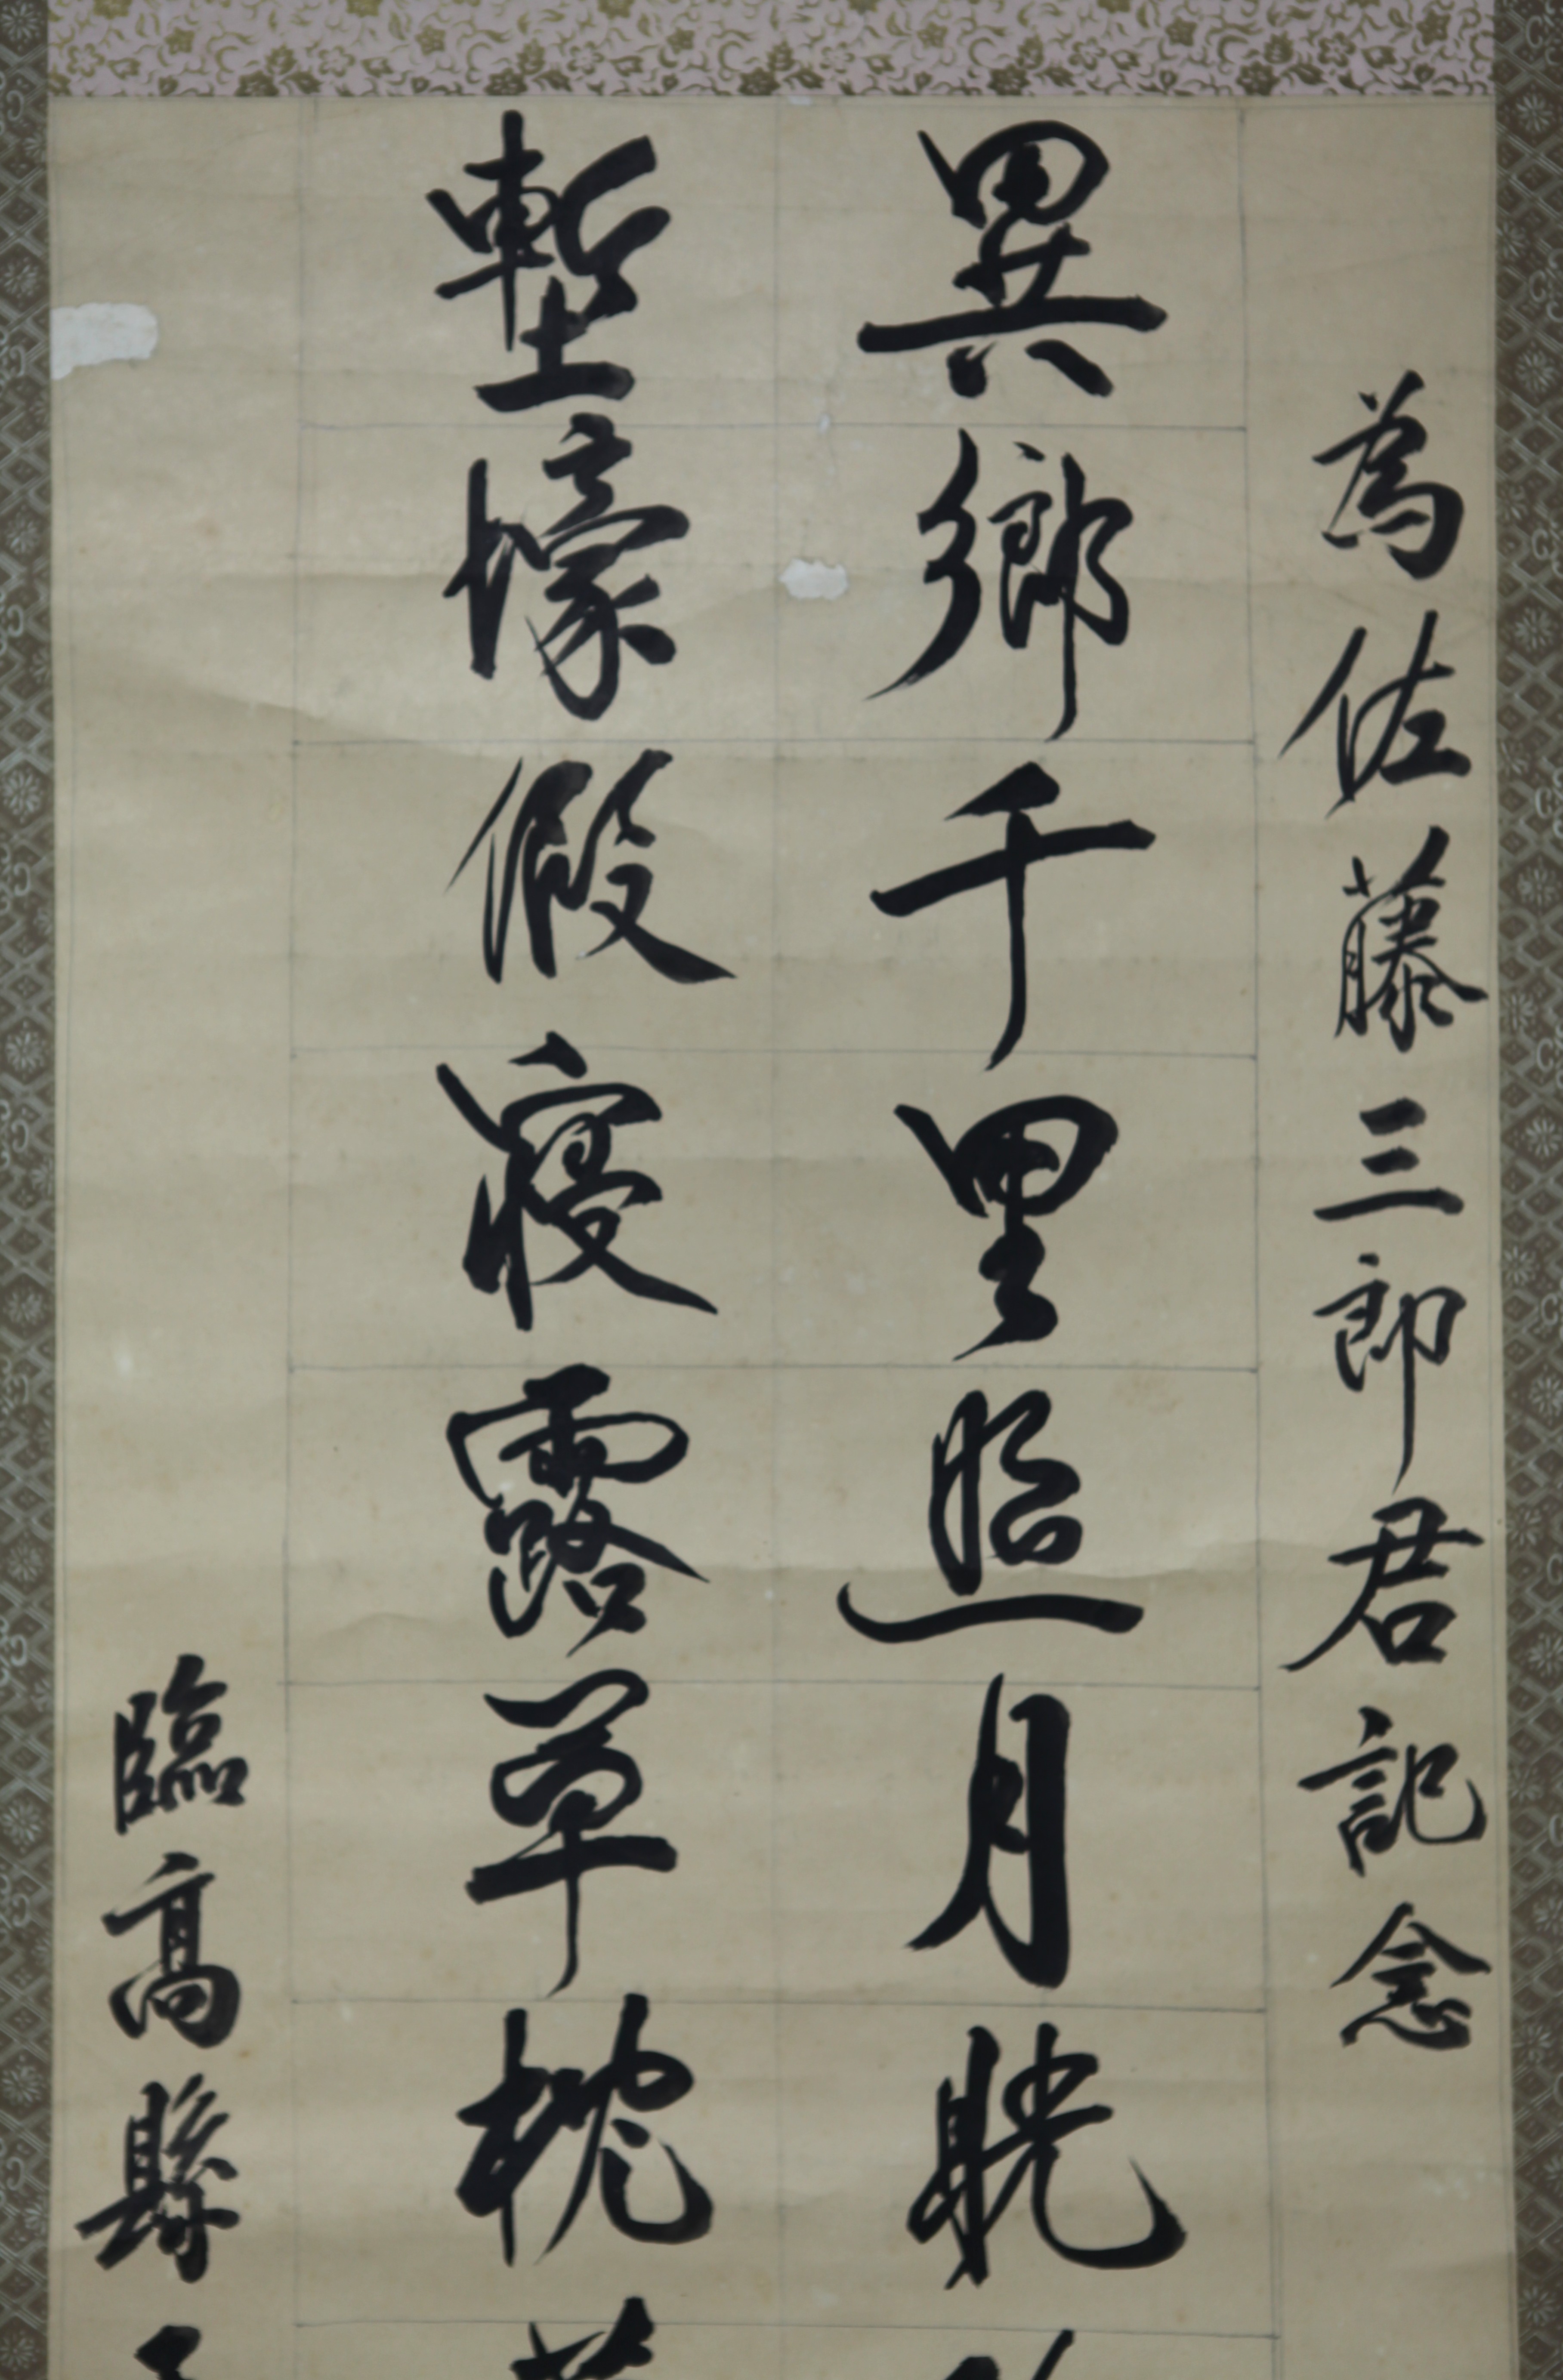 為佐藤三郎君記念
異鄉千里照月
塹壕假寢露草枕
臨高縣